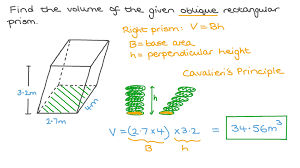 Find the volume of the given oblique rectangular
prism.
Right prism: V = Bh
B = base area
h = perpendicular height
Cavalieri's Principle
3.2m
h
4m
2.7m
V = (2.7 × 4) × 3.2 = 34.56m³
B h